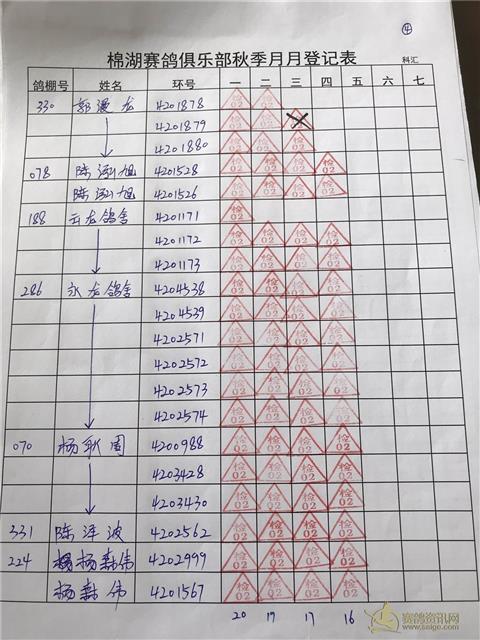 ④
棉湖赛鸽俱乐部秋季月月登记表
科汇
鸽棚号 姓名 环号 一 二 三 四 五 六 七
330 龙 4201878 检02 检02
4201879 检02 检02 检02
4201880 检02 检02 检02
078 陈 旭 4201528 检02 检02 检02 检02
陈 旭 4201526 检02 检02 检02 检02
188 云龙鸽舍 4201171 检02
4201172 检02 检02 检02 检02
4201173 检02 检02 检02 检02
286 永龙鸽舍 4204538 检02 检02 检02 检02
4204539 检02 检02 检02 检02
4202571 检02 检02 检02 检02
4202572 检02 检02 检02 检02
4202573 检02 检02 检02 检02
4202574 检02 检02 检02 检02
070 杨秋周 4200988 检02 检02 检02 检02
4203428 检02 检02 检02 检02
4203430 检02 检02 检02 检02
331 陈泽波 4202562 检02 检02 检02 检02
224 杨 伟 4202999 检02 检02 检02 检02
杨 伟 4201567 检02 检02 检02 检02
20 17 17 16
赛鸽资讯网
www.saige.com